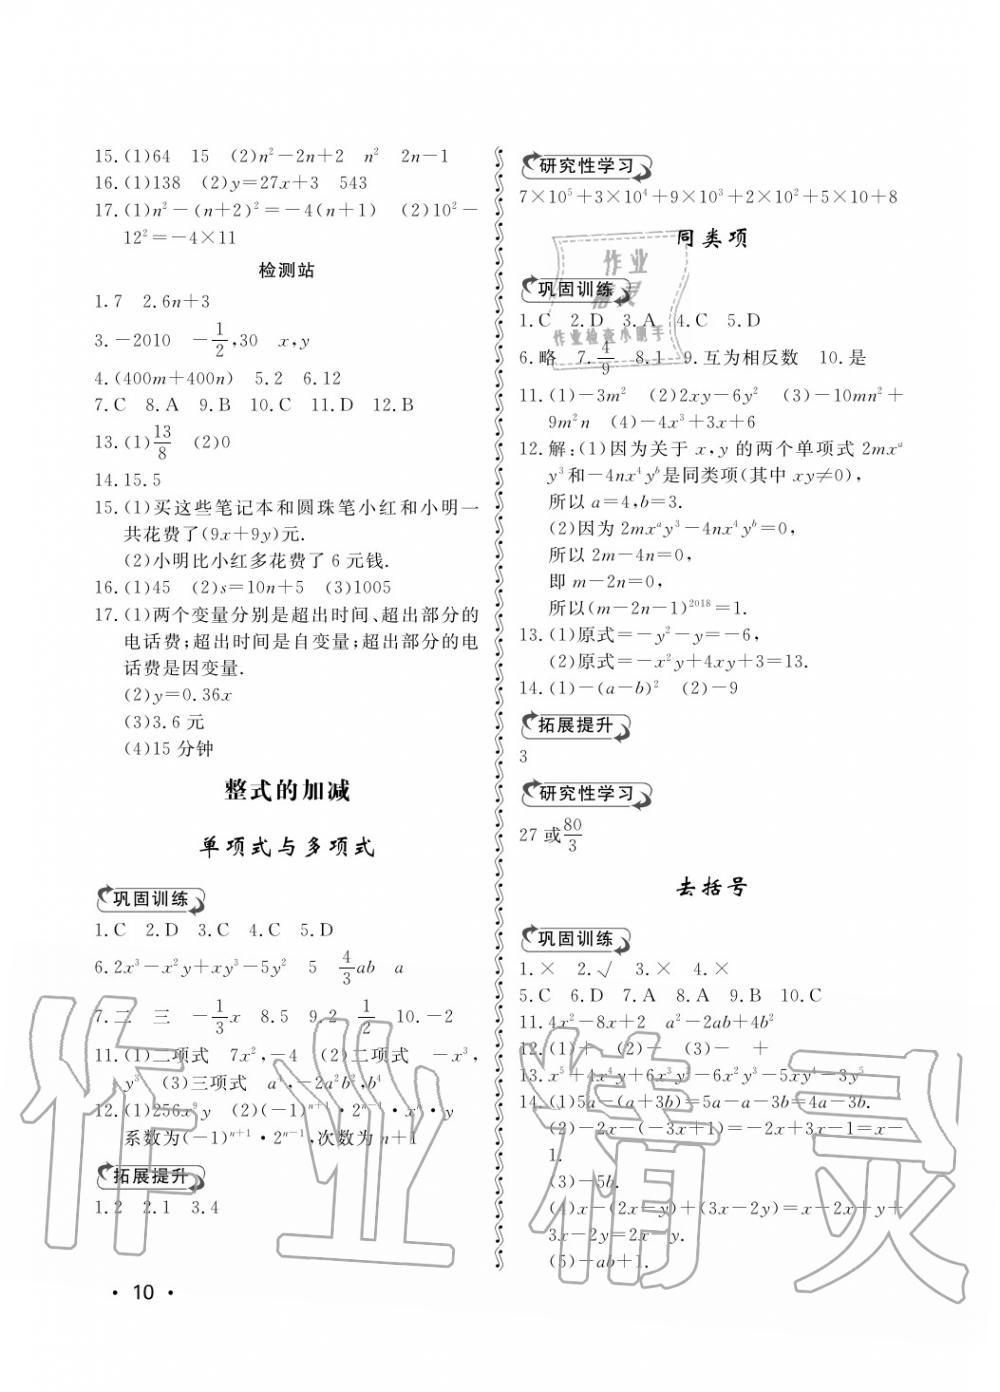 15.(1)64 15 (2)n²-2n+2 n² 2n-1
16.(1)138 (2)y=27x+3 543
17.(1)n²-(n+2)²=-4(n+1) (2)10²-
12²=-4×11
检测站
1.7 2.6n+3
3.-2010 -1/2,30 x,y
4.(400m+400n) 5.2 6.12
7.C 8.A 9.B 10.C 11.D 12.B
13.(1)13/8 (2)0
14.15.5
15.(1)买这些笔记本和圆珠笔小红和小明一
共花费了(9x+9y)元.
(2)小明比小红多花费了6元钱.
16.(1)45 (2)s=10n+5 (3)1005
17.(1)两个变量分别是超出时间、超出部分的
电话费;超出时间是自变量;超出部分的电
话费是因变量.
(2)y=0.36x
(3)3.6元
(4)15分钟
整式的加减
单项式与多项式
巩固训练
1.C 2.D 3.C 4.C 5.D
6.2x³-x²y+xy³-5y² 5 4/3ab a
7.二 三 -1/3x 8.5 9.2 1/2 10.-2
11.(1)二项式 7x²,-4 (2)二项式 -x³,
y³ (3)三项式 a⁴,-2a²b²,b⁴
12.(1)256x⁹y (2)(-1)ⁿ⁺¹·2ⁿ⁻¹·xⁿ·y
系数为(-1)ⁿ⁺¹·2ⁿ⁻¹,次数为n+1
拓展提升
1.2 2.1 3.4
· 10 ·
研究性学习
7×10⁵+3×10⁴+9×10³+2×10²+5×10+8
同类项
巩固训练
1.C 2.D 3.A 4.C 5.D
6.略 7.4/9 8.1 9.互为相反数 10.是
11.(1)-3m² (2)2xy-6y² (3)-10mn²+
9m²n (4)-4x³+3x+6
12.解:(1)因为关于x,y的两个单项式2mxᵃ
y³和-4nx⁴yᵇ是同类项(其中xy≠0),
所以a=4,b=3.
(2)因为2mxᵃy³-4nx⁴yᵇ=0,
所以2m-4n=0,
即m-2n=0,
所以(m-2n-1)²⁰¹⁸=1.
13.(1)原式=-y²-y=-6,
(2)原式=-x²y+4xy+3=13.
14.(1)-(a-b)² (2)-9
拓展提升
3
研究性学习
27或80/3
去括号
巩固训练
1.× 2.√ 3.× 4.×
5.C 6.D 7.A 8.A 9.B 10.C
11.4x²-8x+2 a²-2ab+4b²
12.(1)+ (2)- (3)- +
13.x⁵+4x⁴y+6x³y²-6x²y³-5xy⁴-3y⁵
14.(1)5a-(a+3b)=5a-a-3b=4a-3b.
(2)-2x-(-3x+1)=-2x+3x-1=x-
1.
(3)-5b.
(4)x-(2x-y)+(3x-2y)=x-2x+y+
3x-2y=2x-y.
(5)-ab+1.
作业精灵
作业检查小助手
作业精灵